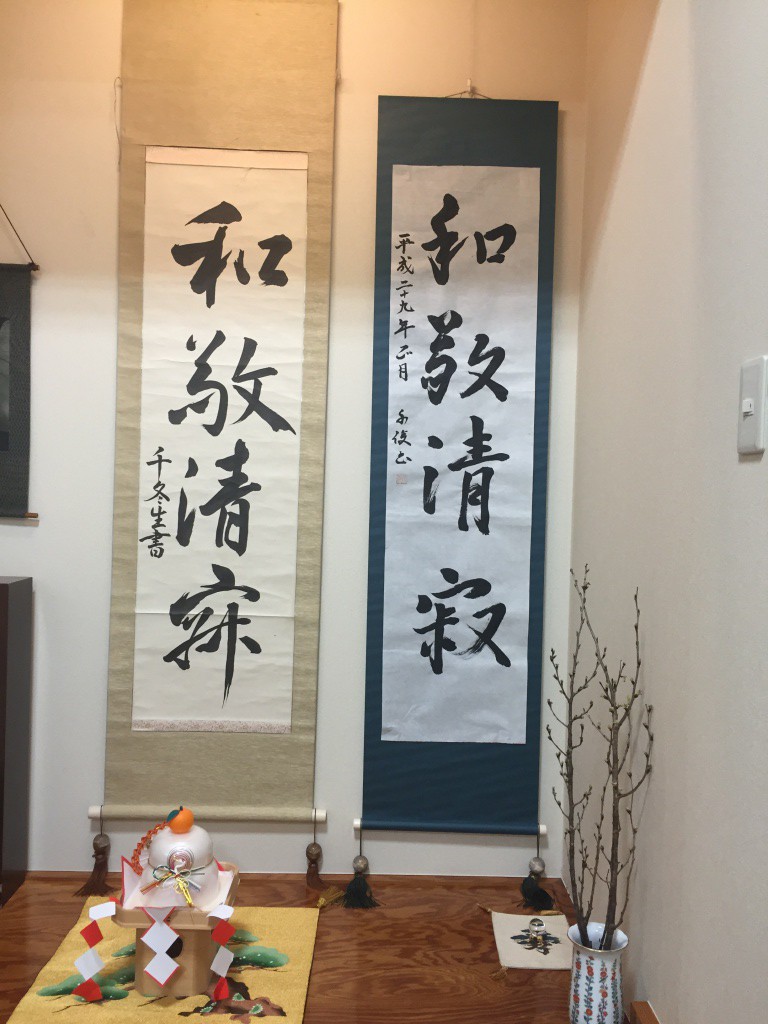 和敬清寂
平成二十九年正月
和敬清寂
千冬生書